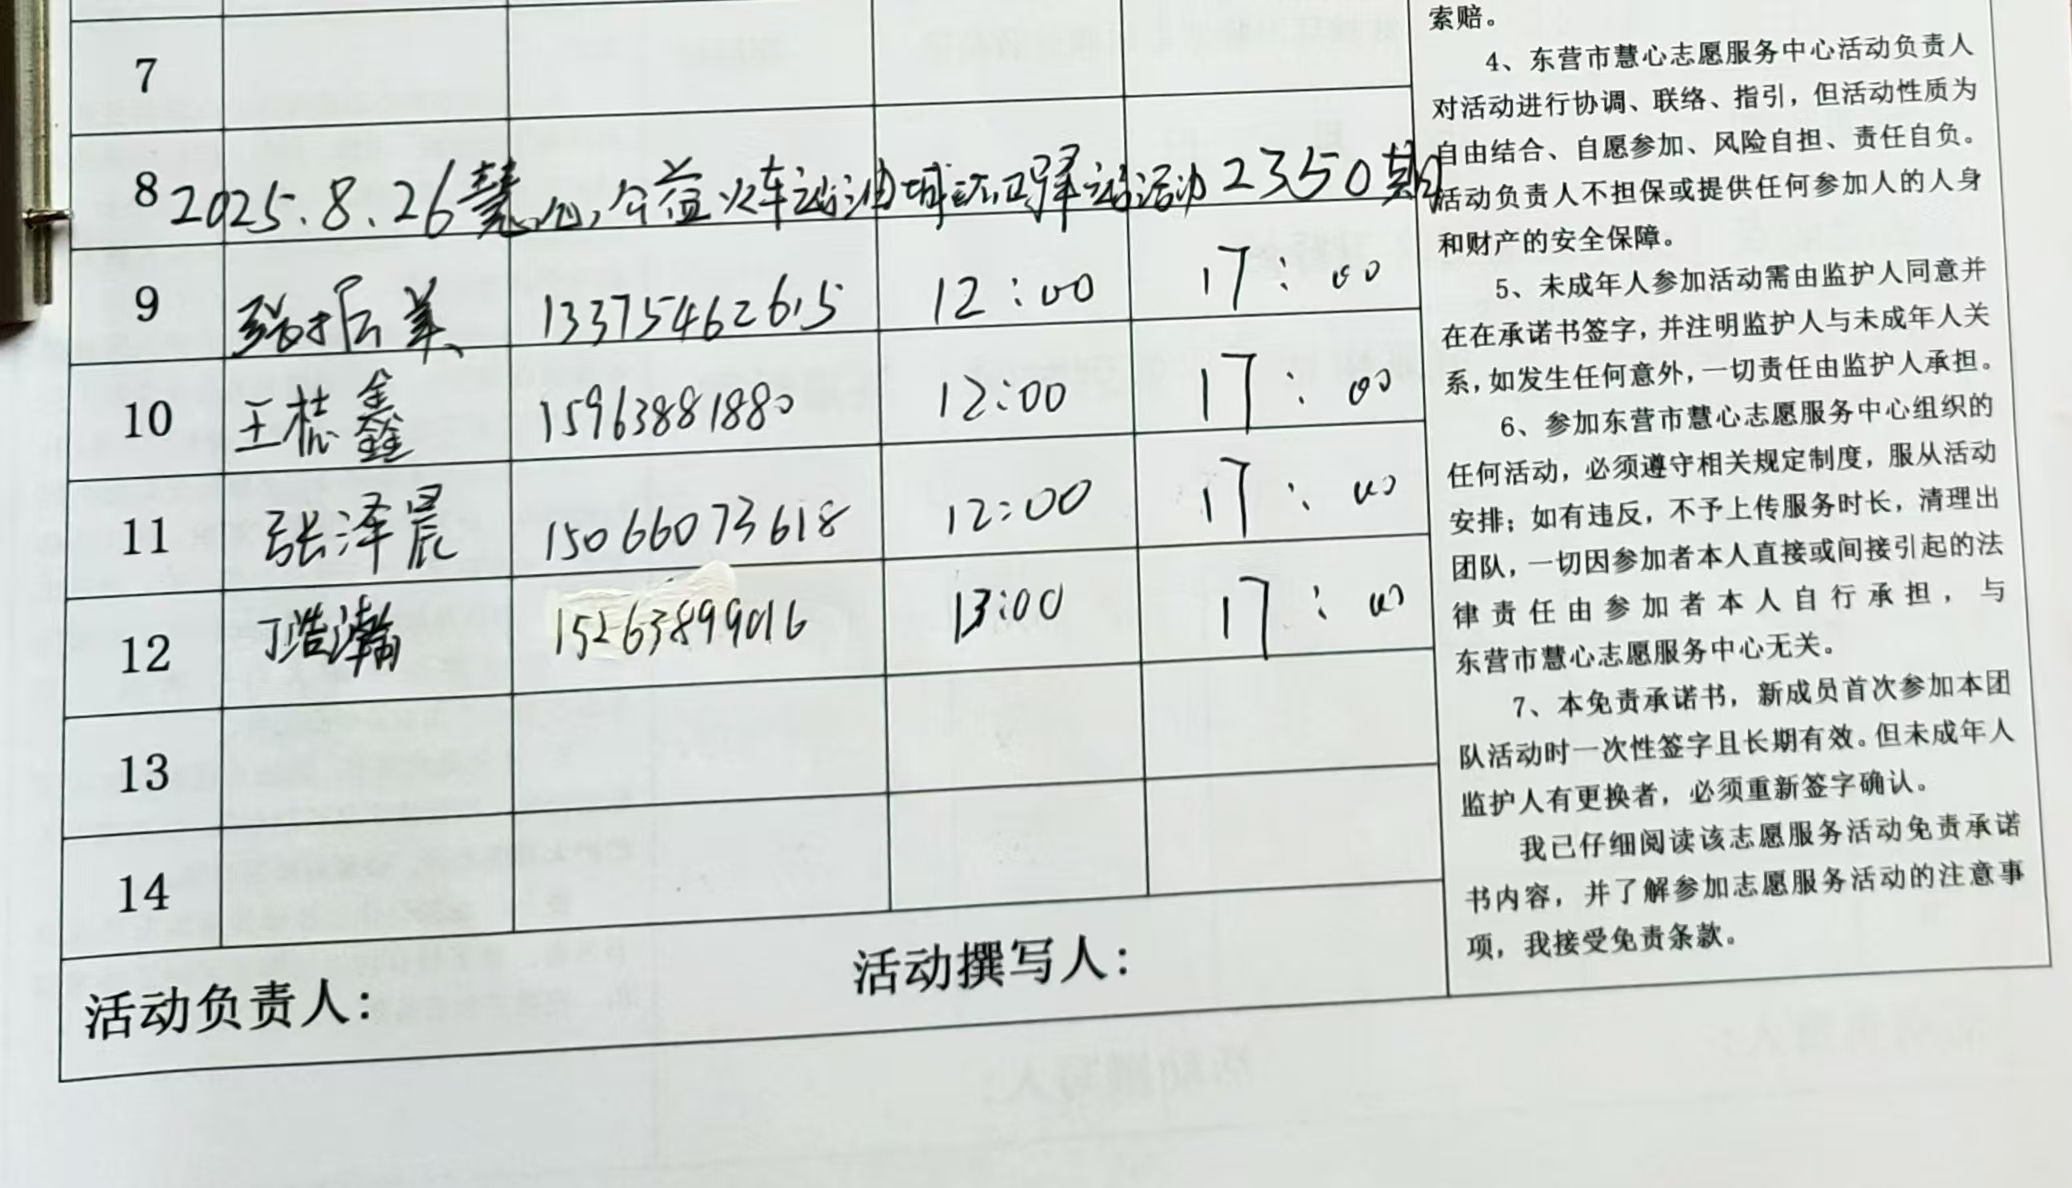 7
8 2025.8.26慧心公益火车站油城环卫驿站活动2350期
9 张振美 13375462615 12:00 17:00
10 王梽鑫 15963881880 12:00 17:00
11 张泽晨 15066073618 12:00 17:00
12 丁浩瀚 15263899016 13:00 17:00
13
14
活动负责人：
活动撰写人：
索赔。
4、东营市慧心志愿服务中心活动负责人
对活动进行协调、联络、指引，但活动性质为
自由结合、自愿参加、风险自担、责任自负。
活动负责人不担保或提供任何参加人的人身
和财产的安全保障。
5、未成年人参加活动需由监护人同意并
在在承诺书签字，并注明监护人与未成年人关
系，如发生任何意外，一切责任由监护人承担。
6、参加东营市慧心志愿服务中心组织的
任何活动，必须遵守相关规定制度，服从活动
安排；如有违反，不予上传服务时长，清理出
团队，一切因参加者本人直接或间接引起的法
律责任由参加者本人自行承担，与
东营市慧心志愿服务中心无关。
7、本免责承诺书，新成员首次参加本团
队活动时一次性签字且长期有效。但未成年人
监护人有更换者，必须重新签字确认。
我已仔细阅读该志愿服务活动免责承诺
书内容，并了解参加志愿服务活动的注意事
项，我接受免责条款。